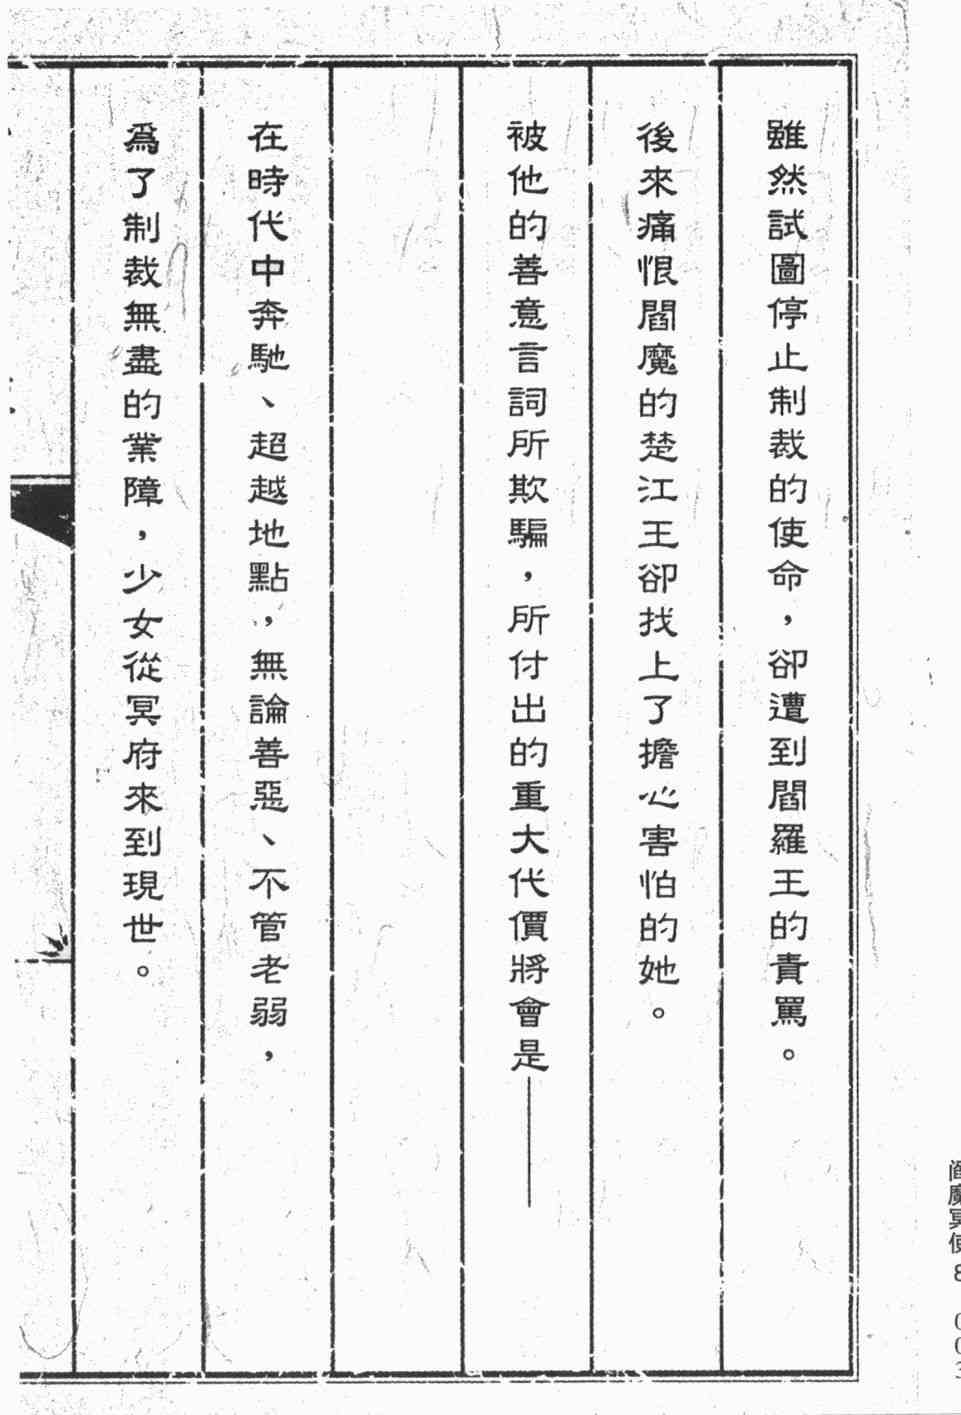 雖然試圖停止制裁的使命，卻遭到閻羅王的責罵。
後來痛恨閻魔的楚江王卻找上了擔心害怕的她。
被他的善意言詞所欺騙，所付出的重大代價將會是——
在時代中奔馳、超越地點，無論善惡、不管老弱，
為了制裁無盡的業障，少女從冥府來到現世。
閻魔冥使 8 003